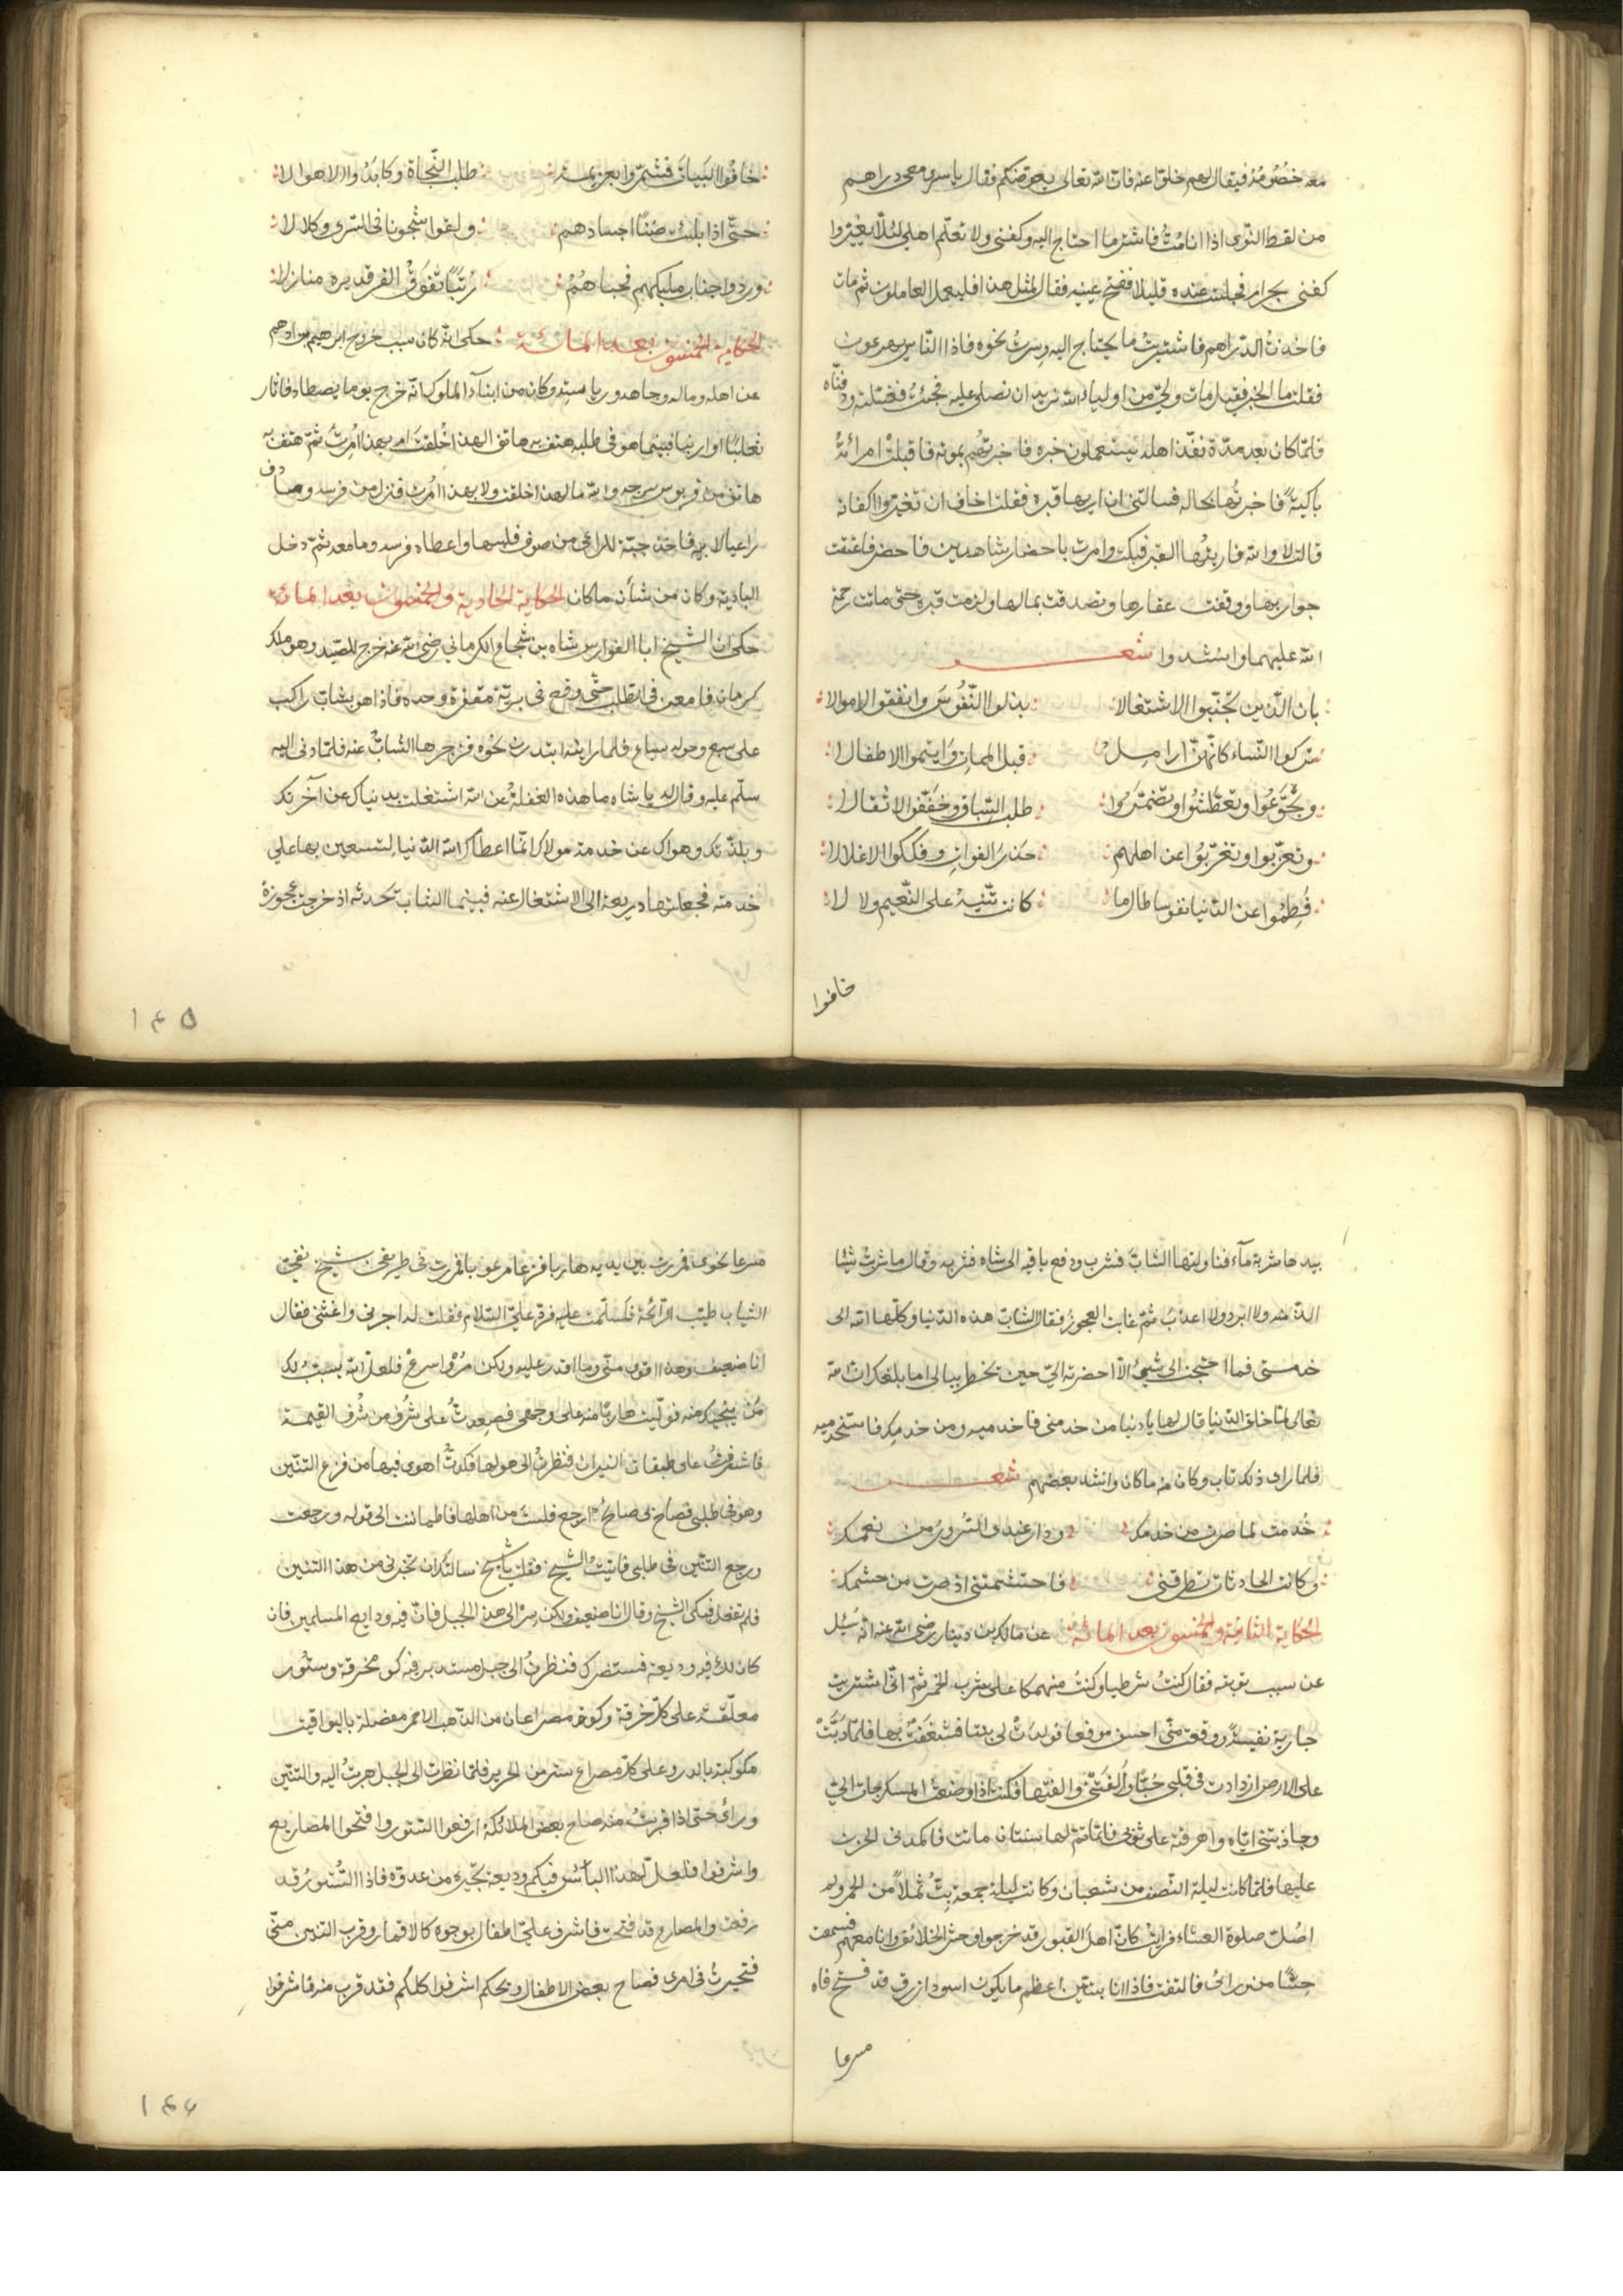 معه خصومة فيقال لهم خلوا عنه فان الله تعالى يعوضكم فقال يا سري معي دراهم
من لقط النوى اذا انا مت فاشتر ما احتاج اليه وكفني ولا تعلم اهلي لئلا يغيروا
كفني بحرام فجلست عنده قليلا ففتح عينيه فقال لمثل هذا فليعمل العاملون ثم مات
فاخذت الدراهم فاشتريت ما يحتاج اليه وسرت نحوه فاذا الناس يهرعون
فقلت ما الخبر فقيل مات ولي من اولياء الله نريد ان نصلي عليه فجئت فغسلته ودفناه
فلما كان بعد مدة نفذ اهله يستعملون خبره فاخبرتهم بموته فاقبلت امرأته
باكية فاخبرتها بحاله فسالتني ان اريها قبره فقلت اخاف ان تغيروا اكفانه
قالت لا والله فاريتها القبر فبكت وامرت باحضار شاهدين فاحضر فاعتقت
جواريها ووقفت عقارها وتصدقت بمالها ولزمت قبره حتى ماتت رحمة
الله عليهما وانشدوا شعر
بان الذين تجنبوا الاشتغالا بذلوا النفوس وانفقوا الاموالا
تركوا النساء كانهن ارامل قبل الممات وايتموا الاطفالا
وتجوعوا وتعطشوا وتضمروا طلب السباق وخففوا الاثقالا
وتعزبوا وتغربوا عن اهلهم حذر الفوات وفككوا الاغلالا
فطموا عن الدنيا نفوسا طالما كانت تتيه على النعيم ولا لا
خافوا
خافوا البيات فشمروا بعزيمة طلب النجاة وكابدوا الاهوالا
حتى اذا بليت ضنا اجسادهم ولقوا شجونا في السرى وكلالا
وردوا جناب مليكهم فحباهم رتبا تفوق الفرقد يره منازلا
الحكاية الخمسون بعد المائة حكي انه كان سبب خروج ابرهيم بن ادهم
عن اهله وماله وجاهه ورياسته وكان من ابناء الملوك انه خرج يوما يصطاد فاثار
ثعلبا او ارنبا فبينما هو في طلبه هتف به هاتف الهذا اخلقت ام بهذا امرت ثم هتف به
هاتف من قربوس سرجه والله ما لهذا خلقت ولا بهذا امرت فنزل من فرسه وصادف
راعيا لابيه فاخذ جبة للراعي من صوف فلبسها واعطاه فرسه وما معه ثم دخل
البادية وكان من شأنه ما كان الحكاية الحادية والخمسون بعد المائة
حكي ان الشيخ ابا الفوارس شاه بن شجاع الكرماني رضي الله عنه خرج للصيد وهو ملك
كرمان فامعن في الطلب حتى وقع في برية مقفرة وحده فاذا هو بشاب راكب
على سبع وحوله سباع فلما راته ابتدرت نحوه فزجرها الشاب عنه فلما دنى اليه
سلم عليه وقال له يا شاه ما هذه الغفلة عن الله اشتغلت بدنياك عن آخرتك
وبلذتك وهواك عن خدمة مولاك انما اعطاك الله الدنيا لتستعين بها على
خدمته فجعلتها ذريعة الى الاشتغال عنه فبينما الشاب تحدثه اذ خرجت عجوزة
١٤٥
بيدها شربة ماء فناولتها الشاب فشرب ودفع باقيه الى شاه فشربه وقال ما شربت شيئا
الذ منه ولا ابرد ولا اعذب ثم غابت العجوز فقال الشاب هذه الدنيا وكلها الله الى
خدمتي فما احتجت الى شيئ الا احضرته الي حين تخطر ببالي اما بلغك ان الله
تعالى لما خلق الدنيا قال لها يا دنيا من خدمني فاخدميه ومن خدمك فاستخدميه
فلما راى ذلك تاب وكان منه ما كان وانشد بعضهم شعر
خدمت لما صرت من خدمك ودار عندي السرور من نعمك
وكانت الحادثات تطرقني فاحتشمتني اذ صرت من حشمك
الحكاية الثانية والخمسون بعد المائة عن مالك بن دينار رضي الله عنه انه سئل
عن سبب توبته فقال كنت شرطيا وكنت منهمكا على شرب الخمر ثم اني اشتريت
جارية نفيسة ووقعت مني احسن موقعا فولدت لي بنتا فشغفت بها فلما دبت
على الارض ازدادت في قلبي حبا والفتني والفتها فكنت اذا وضعت المسكر جات الي
وجاذبتني اياه واهرقته على ثوبي فلما تم لها سنتان ماتت فاكمدني الحزن
عليها فلما كانت ليلة النصف من شعبان وكانت ليلة جمعة بت ثملا من الخمر ولم
اصل صلوة العشاء فرايت كان اهل القبور قد خرجوا وحشر الخلائق وانا معهم فسمعت
حسا من ورائي فالتفت فاذا انا بتنين اعظم ما يكون اسود ازرق قد فتح فاه
مسرعا
مسرعا نحوي فمررت بين يديه هاربا فزعا مرعوبا فمررت في طريقي بشيخ نقي
الثياب طيب الرائحة فسلمت عليه فرد علي السلام فقلت له اجرني واغثني فقال
انا ضعيف وهذا اقوى مني وما اقدر عليه ولكن مر واسرع فلعل الله يسبب لك
من ينجيك منه فوليت هاربا منه على وجهي فصعدت على شرف من شرف القيمة
فاشرفت على طبقات النيران فنظرت الى هولها فكدت اهوي فيها من فزع التنين
وهو في طلبي فصاح بي صائح ارجع فلست من اهلها فاطماننت الى قوله ورجعت
ورجع التنين في طلبي فاتيت الشيخ فقلت يا شيخ سالتك ان تجرني من هذا التنين
فلم تفعل فبكى الشيخ وقال انا ضعيف ولكن سر الى هذا الجبل فان فيه ودايع المسلمين فان
كان لك فيه وديعة فستنصرك فنظرت الى جبل مستدير فيه كوى مخرقة وستور
معلقة على كل خرقة وكوة مصراعان من الذهب الاحمر مفضلة باليواقيت
مكوكبة بالدر وعلى كل مصراع ستر من الحرير فلما نظرت الى الجبل هربت اليه والتنين
ورائي حتى اذا قربت منه صاح بعض الملائكة ارفعوا الستور وافتحوا المصاريع
واشرفوا فلعل لهذا البائس فيكم وديعة تجيره من عدوه فاذا الستور قد
رفعت والمصاريع قد فتحت فاشرف علي اطفال بوجوه كالاقمار وقرب التنين مني
فتحيرت في امري فصاح بعض الاطفال ويحكم اشرفوا كلكم فقد قرب منه فاشرفوا
١٤٦